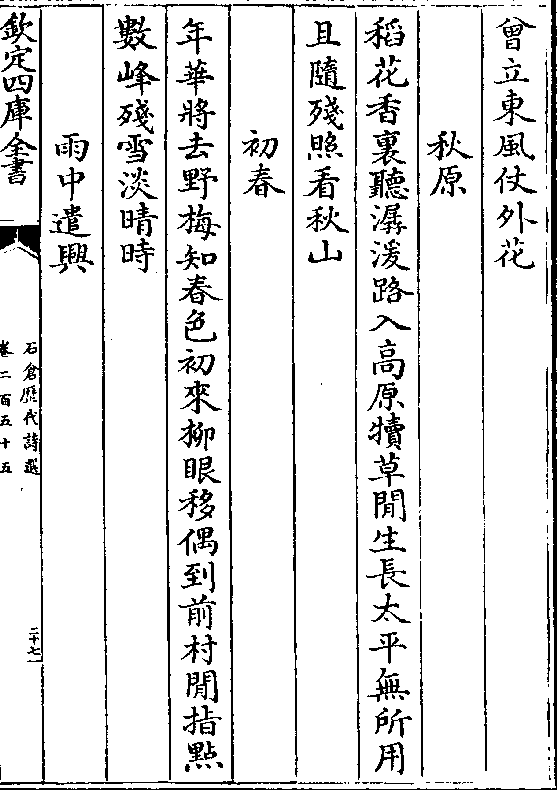 曾立東風仗外花
秋原
稻花香裏聽潺湲路入高原犢草閒生長太平無所用
且隨殘照看秋山
初春
年華將去野梅知春色初來柳眼移偶到前村閒指點
數峰殘雪淡晴時
雨中遣興
欽定四庫全書
石倉歷代詩選
卷二百五十五
二十七